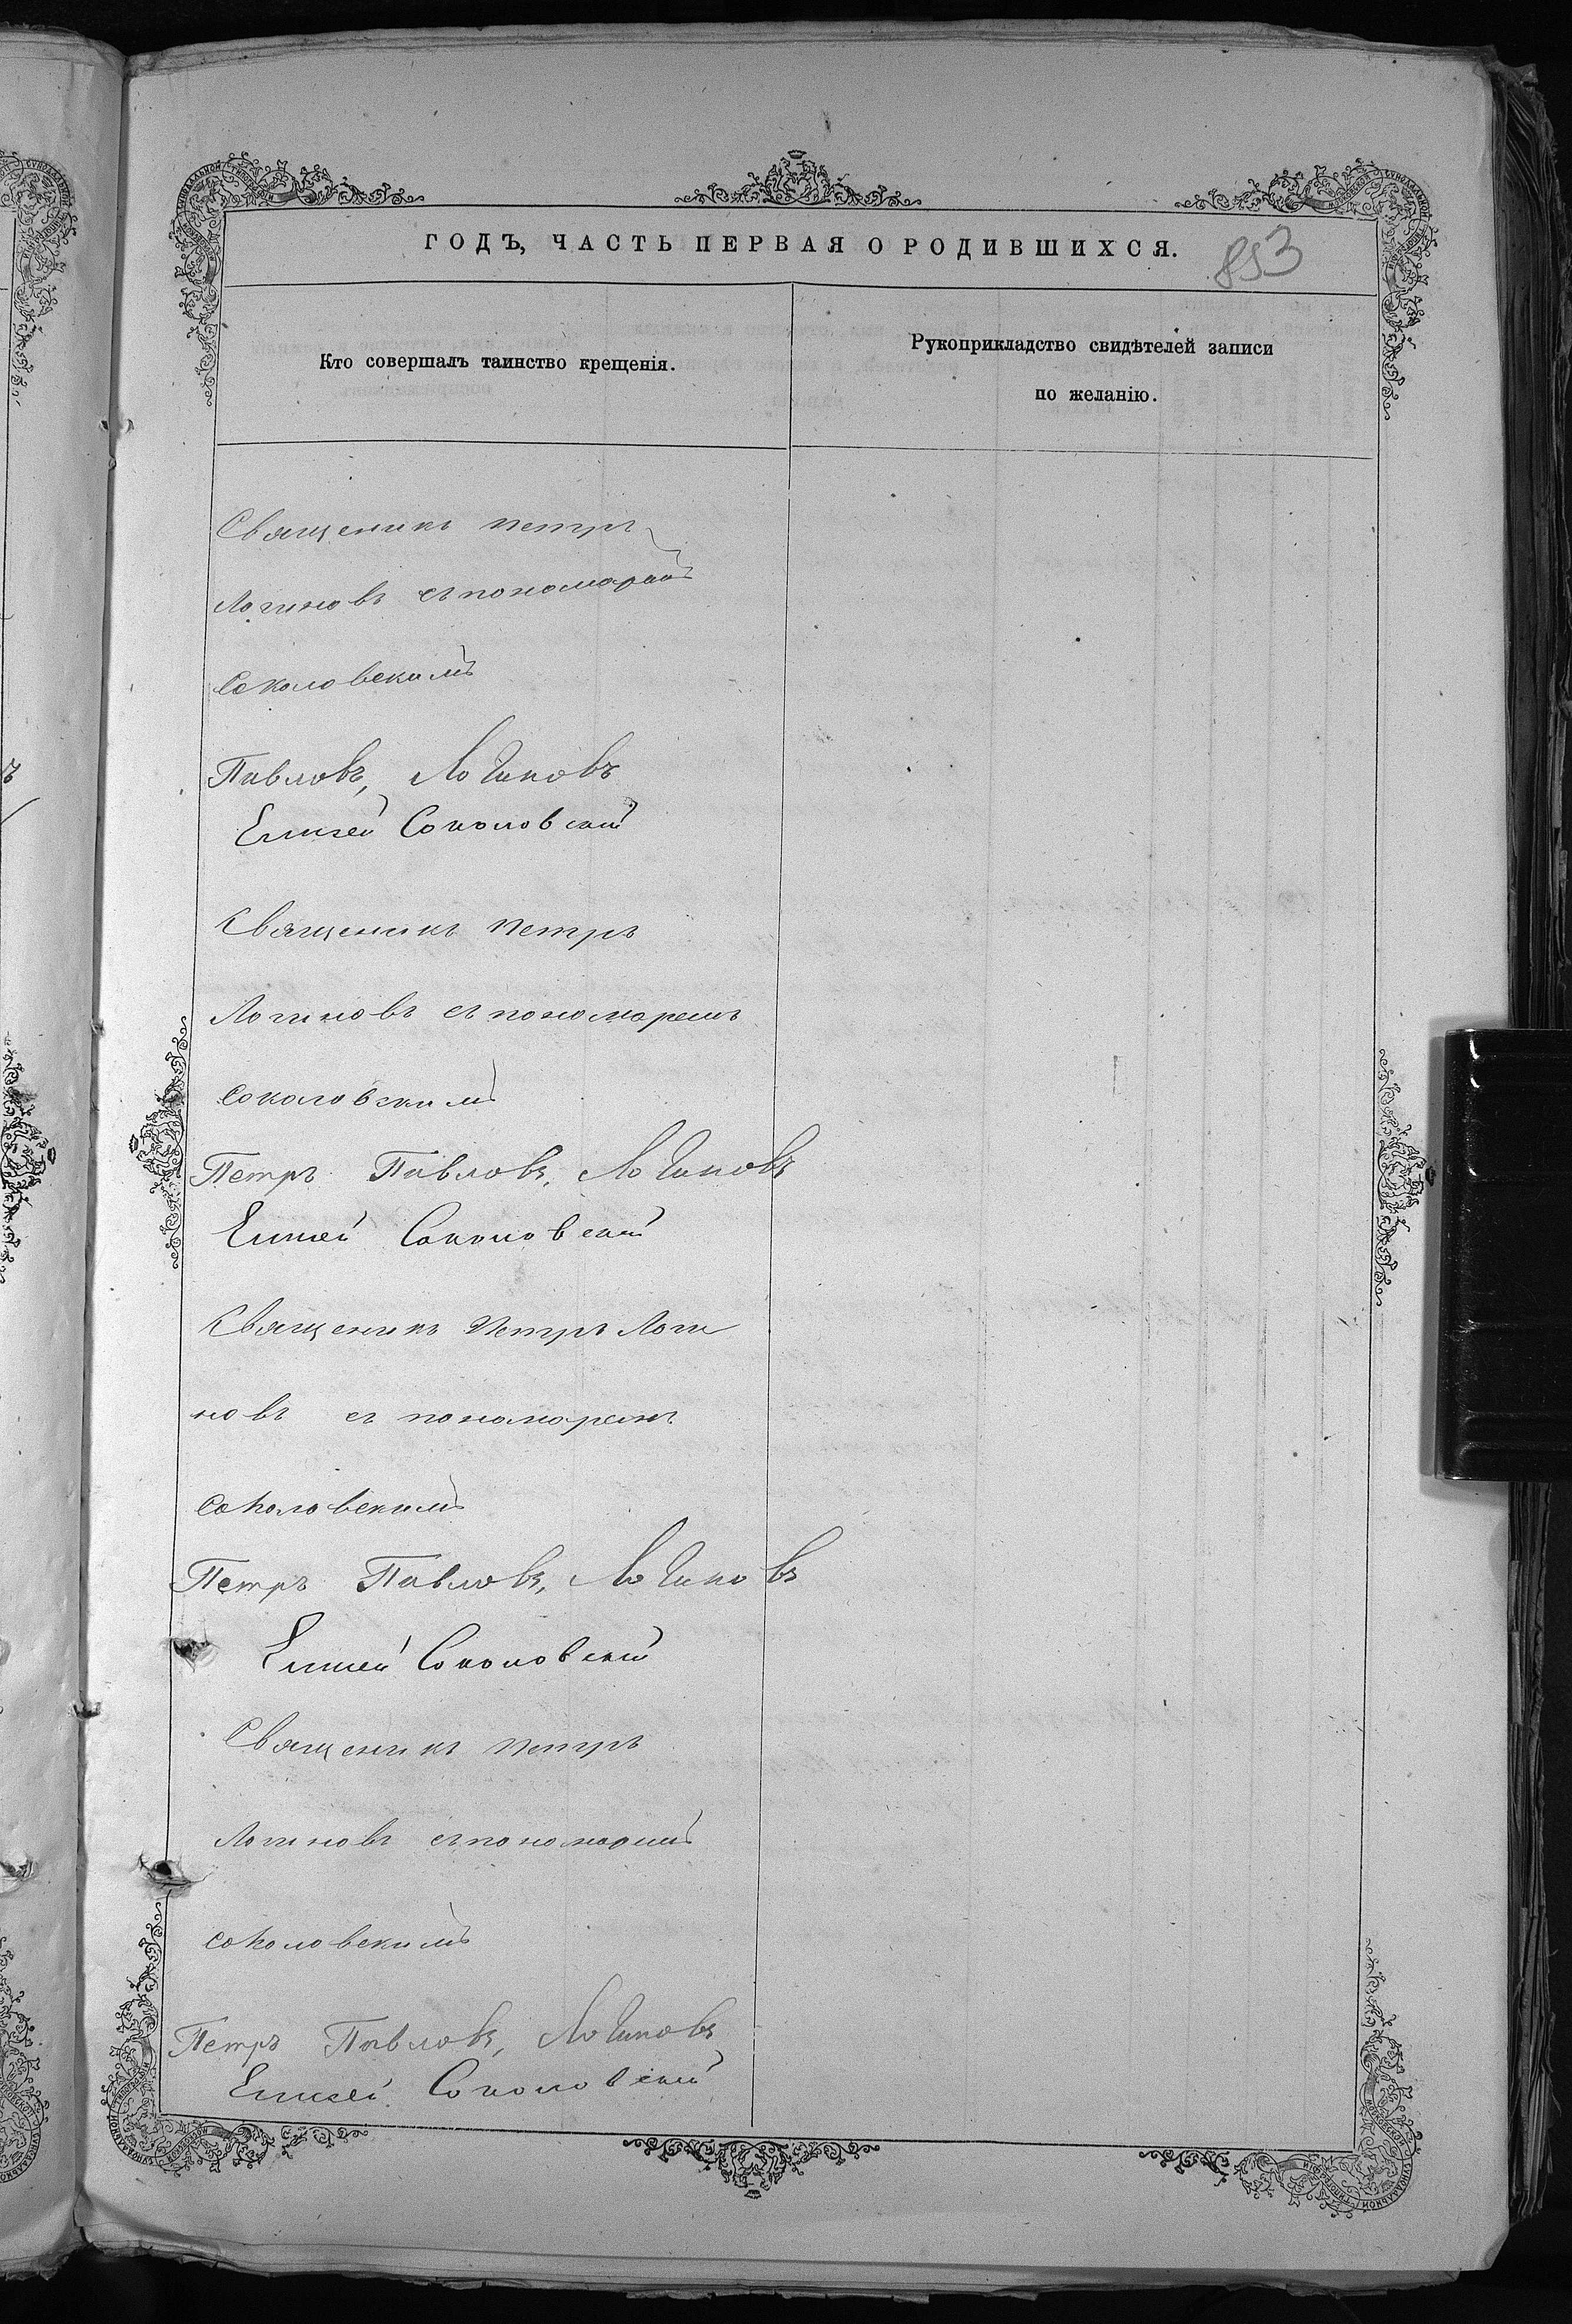 ГОДЪ, ЧАСТЬ ПЕРВАЯ О РОДИВШИХСЯ.
853
Кто совершалъ таинство крещенія.
Рукоприкладство свидѣтелей записи
по желанію.
Священикъ Петръ
Логиновъ съ пономаремъ
Соколовскимъ
Павловъ, Логиновъ
Елисей Соколовскій
Священикъ Петръ
Логиновъ съ пономаремъ
Соколовскимъ
Петръ Павловъ, Логиновъ
Елисей Соколовскій
Священикъ Петръ Логи
новъ съ пономаремъ
Соколовскимъ
Петръ Павловъ, Логиновъ
Елисей Соколовскій
Священикъ Петръ
Логиновъ съ пономаремъ
Соколовскимъ
Петръ Павловъ, Логиновъ
Елисей Соколовскій